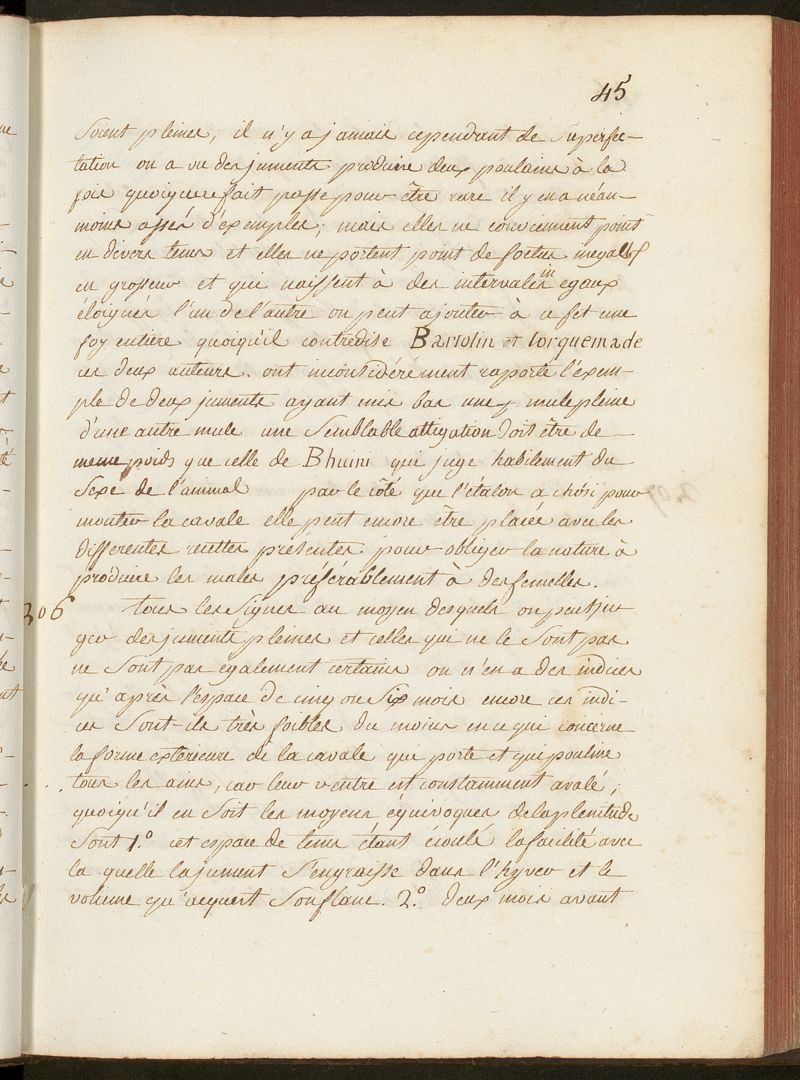 45
soient pleines, il n'y a jamais cependant de superfee-
tation on a vu des juments produire deux poulains à la
fois quoique ce fait passe pour être rare il y en a néan-
moins assés d'exemples; mais elles ne concoivent point
en divers tems et elles ne portent point de foetus inegals
en grosseur et qui naissent à des intervales inegaux
éloignés l'un de l'autre on peut ajouter à ce fet une
foy entiere quoiqu'il contredise Bartolin et torquemade
ces deux auteurs. ont inconsidérément rapporté l'exem-
ple de deux juments ayant mis bas une mule pleine
d'une autre mule une semblable attigation doit être de
meme poids que celle de Bhuini qui juge habilement du
sexe de l'animal par le côté que l'étalon a choisi pour
monter la cavale elle peut encore être placée avec les
differentes recettes présentes pour obliger la nature à
produire les males préférablement à des femelles.
306 tous les signes au moyen desquels on peut ju-
ger des juments pleines et celles qui ne le sont pas
ne sont pas également certains on n'en a des indices
qu'après l'espace de cinq ou six mois encore ces indi-
ces sont-ils très foibles du moins en ce qui concerne
la forme exterieure de la cavale qui porte et qui pouline
tous les ains, car leur ventre est constamment avalé;
quoiqu'il en soit les moyens équivoques de la plenitude
sont 1.° cet espace de tems étant écoulé la facilité avec
la quelle la jument s'engraisse dans l'hyver et le
volume qu'acquert son flanc. 2.° deux mois avant